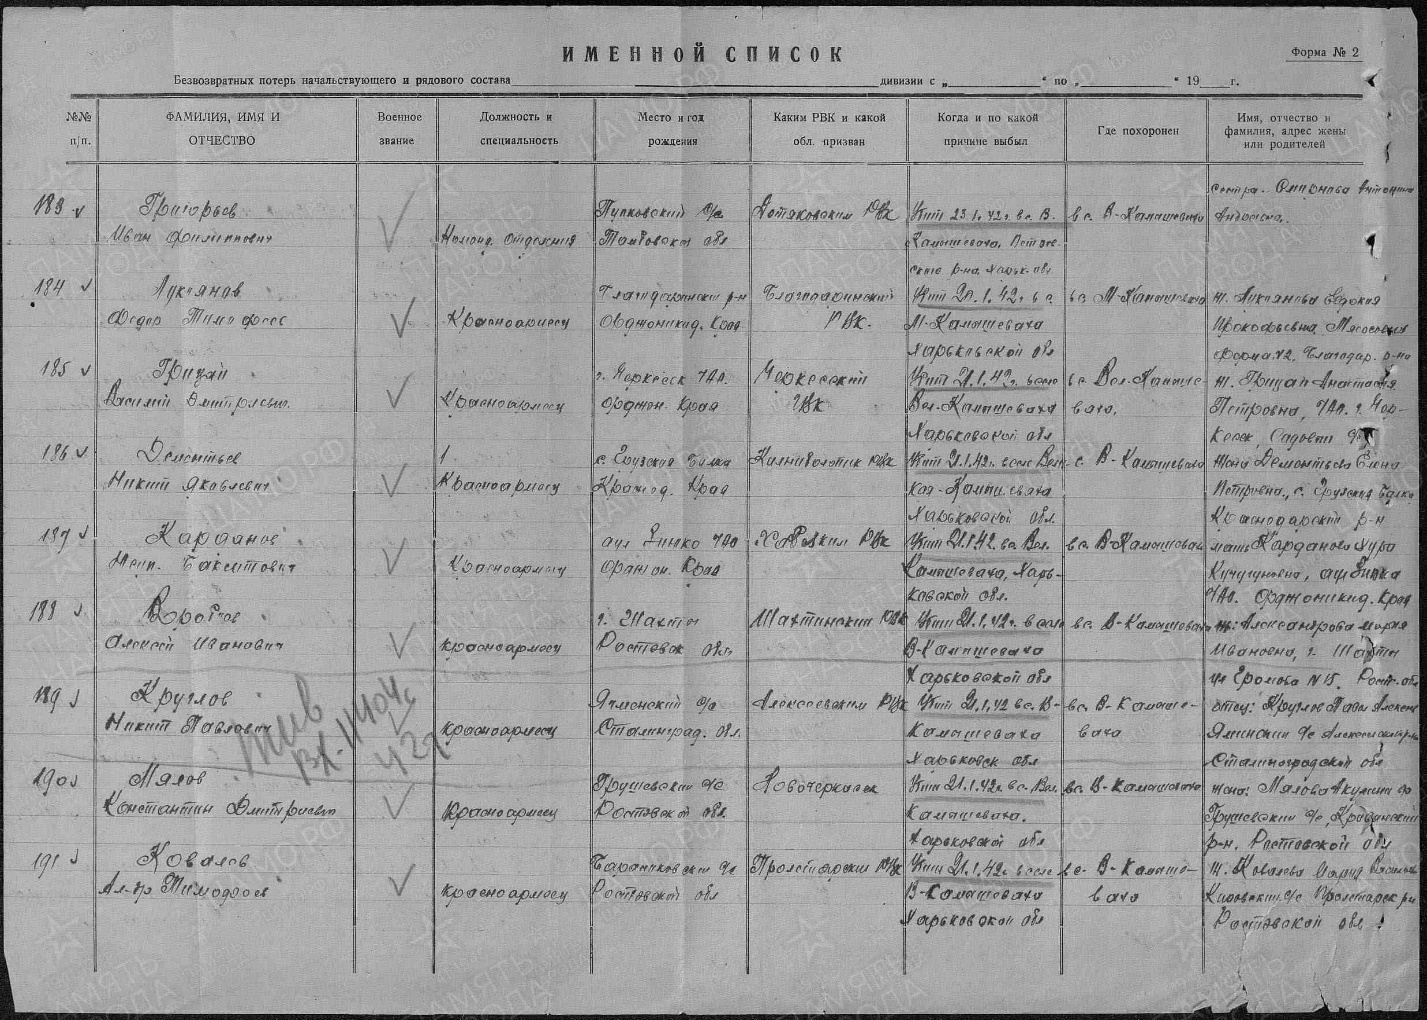 ИМЕННОЙ СПИСОК
Форма № 2
Безвозвратных потерь начальствующего и рядового состава дивизии с „ “ по „ “ 19 г.
№№ п/п.
ФАМИЛИЯ, ИМЯ И ОТЧЕСТВО
Военное звание
Должность и специальность
Место и год рождения
Каким РВК и какой обл. призван
Когда и по какой причине выбыл
Где похоронен
Имя, отчество и фамилия, адрес жены или родителей
183 Григорьев
Иван Филиппович
Команд. отделения
Тамбовской обл
РВК
Убит 23.1.42г. в с. В.
Камышеваха,
в с. В-Камышеваха
184 Лукьянов
Федор Тимофеев
Красноармеец
Благодарненский р-н
Орджоникид. Края
Благодарненский
РВК.
Убит 20.1.42г. в с.
М-Камышеваха
Харьковской обл
в с. М-Камышеваха
ж. Лукьянова Евдокия
Прокофьевна
185 Грицай
Василий Дмитриевич
Красноармеец
г. Черкесск ЧАО.
Орджон. Края
Черкесский
ГВК
Убит 21.1.42г. в селе
Вел-Камышеваха
Харьковской обл
в с. Вел-Камыше-
ваха.
ж. Грицай Анастасия
Петровна, ЧАО. г. Чер-
кесск, Садовая
186 Дементьев
Никит Яковлевич
Красноармеец
с. Грузская Балка
Краснод. Края
РВК
Убит 21.1.42г. в селе Вел-
кая-Камышеваха
Харьковской обл.
с. В-Камышеваха
жена Дементьева Елена
Петровна, с. Грузская Балка
Краснодарский р-н
187 Карданов
Красноармеец
аул ЧАО
Орджон. Края
РВК
Убит 21.1.42 в с. Вел.
Камышеваха, Харь-
ковской обл.
в с. В-Камышевах
мать Карданова
ЧАО. Орджоникид. Края
188
Алексей Иванович
красноармеец
г. Шахты
Ростовск обл
Шахтинским РВК
Убит 21.1.42г. в селе
В-Камышеваха
Харьковской обл
в с. В-Камышеваха
ж: Александрова Мария
Ивановна, г. Шахты
ул Громова N 15. Рост. обл
189 Круглов
Никит Павлович
Жив
вх-11404с
42г
красноармеец
Сталинград. обл.
Алексеевским РВК
Убит 21.1.42 в с. В-
Камышеваха
Харьковск обл
в с. В-Камыше-
ваха
отец: Круглов Павел Алексеев
Сталинградской обл
190 Мялов
Константин Дмитриевич
Красноармеец
Грушевский с/с
Ростовской обл.
Новочеркасск
Убит 21.1.42г. в с. Вел.
Камышеваха.
Харьковской обл
в с. В-Камышеваха
жена: Мялова Акулина
Грушевский с/с,
р-н. Ростовской обл
191 Ковалев
Ал-др Тимофеев
красноармеец
Баранниковский с/с
Ростовской обл
Пролетарским РВК
Убит 21.1.42г. в селе
В-Камышеваха
Харьковской обл
в с. В-Камыше-
ваха
ж. Ковалева Мария
Пролетарск рн
Ростовской обл.